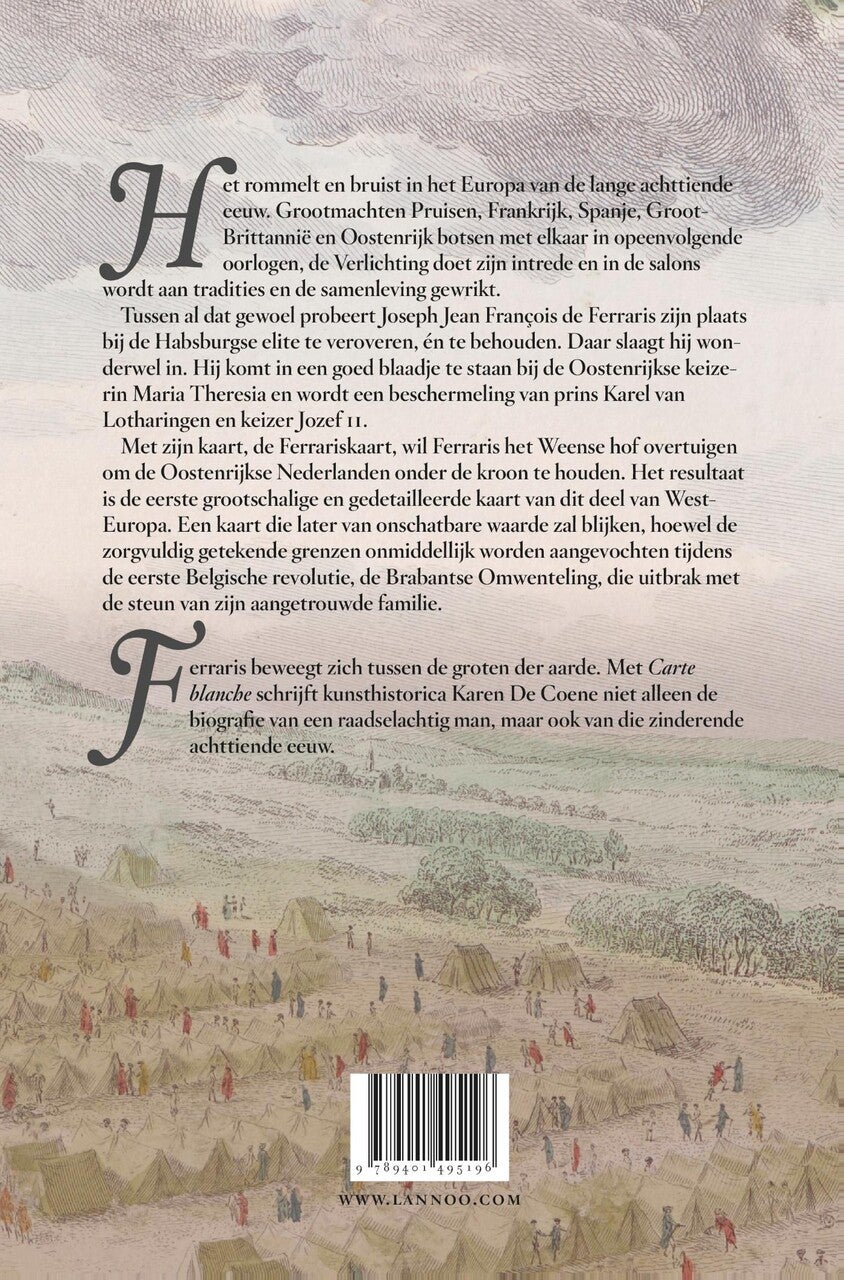 Het rommelt en bruist in het Europa van de lange achttiende
eeuw. Grootmachten Pruisen, Frankrijk, Spanje, Groot-
Brittannië en Oostenrijk botsen met elkaar in opeenvolgende
oorlogen, de Verlichting doet zijn intrede en in de salons
wordt aan tradities en de samenleving gewrikt.
Tussen al dat gewoel probeert Joseph Jean François de Ferraris zijn plaats
bij de Habsburgse elite te veroveren, én te behouden. Daar slaagt hij won-
derwel in. Hij komt in een goed blaadje te staan bij de Oostenrijkse keize-
rin Maria Theresia en wordt een beschermeling van prins Karel van
Lotharingen en keizer Jozef II.
Met zijn kaart, de Ferrariskaart, wil Ferraris het Weense hof overtuigen
om de Oostenrijkse Nederlanden onder de kroon te houden. Het resultaat
is de eerste grootschalige en gedetailleerde kaart van dit deel van West-
Europa. Een kaart die later van onschatbare waarde zal blijken, hoewel de
zorgvuldig getekende grenzen onmiddellijk worden aangevochten tijdens
de eerste Belgische revolutie, de Brabantse Omwenteling, die uitbrak met
de steun van zijn aangetrouwde familie.
Ferraris beweegt zich tussen de groten der aarde. Met Carte
blanche schrijft kunsthistorica Karen De Coene niet alleen de
biografie van een raadselachtig man, maar ook van die zinderende
achttiende eeuw.
9 789401 495196
WWW.LANNOO.COM